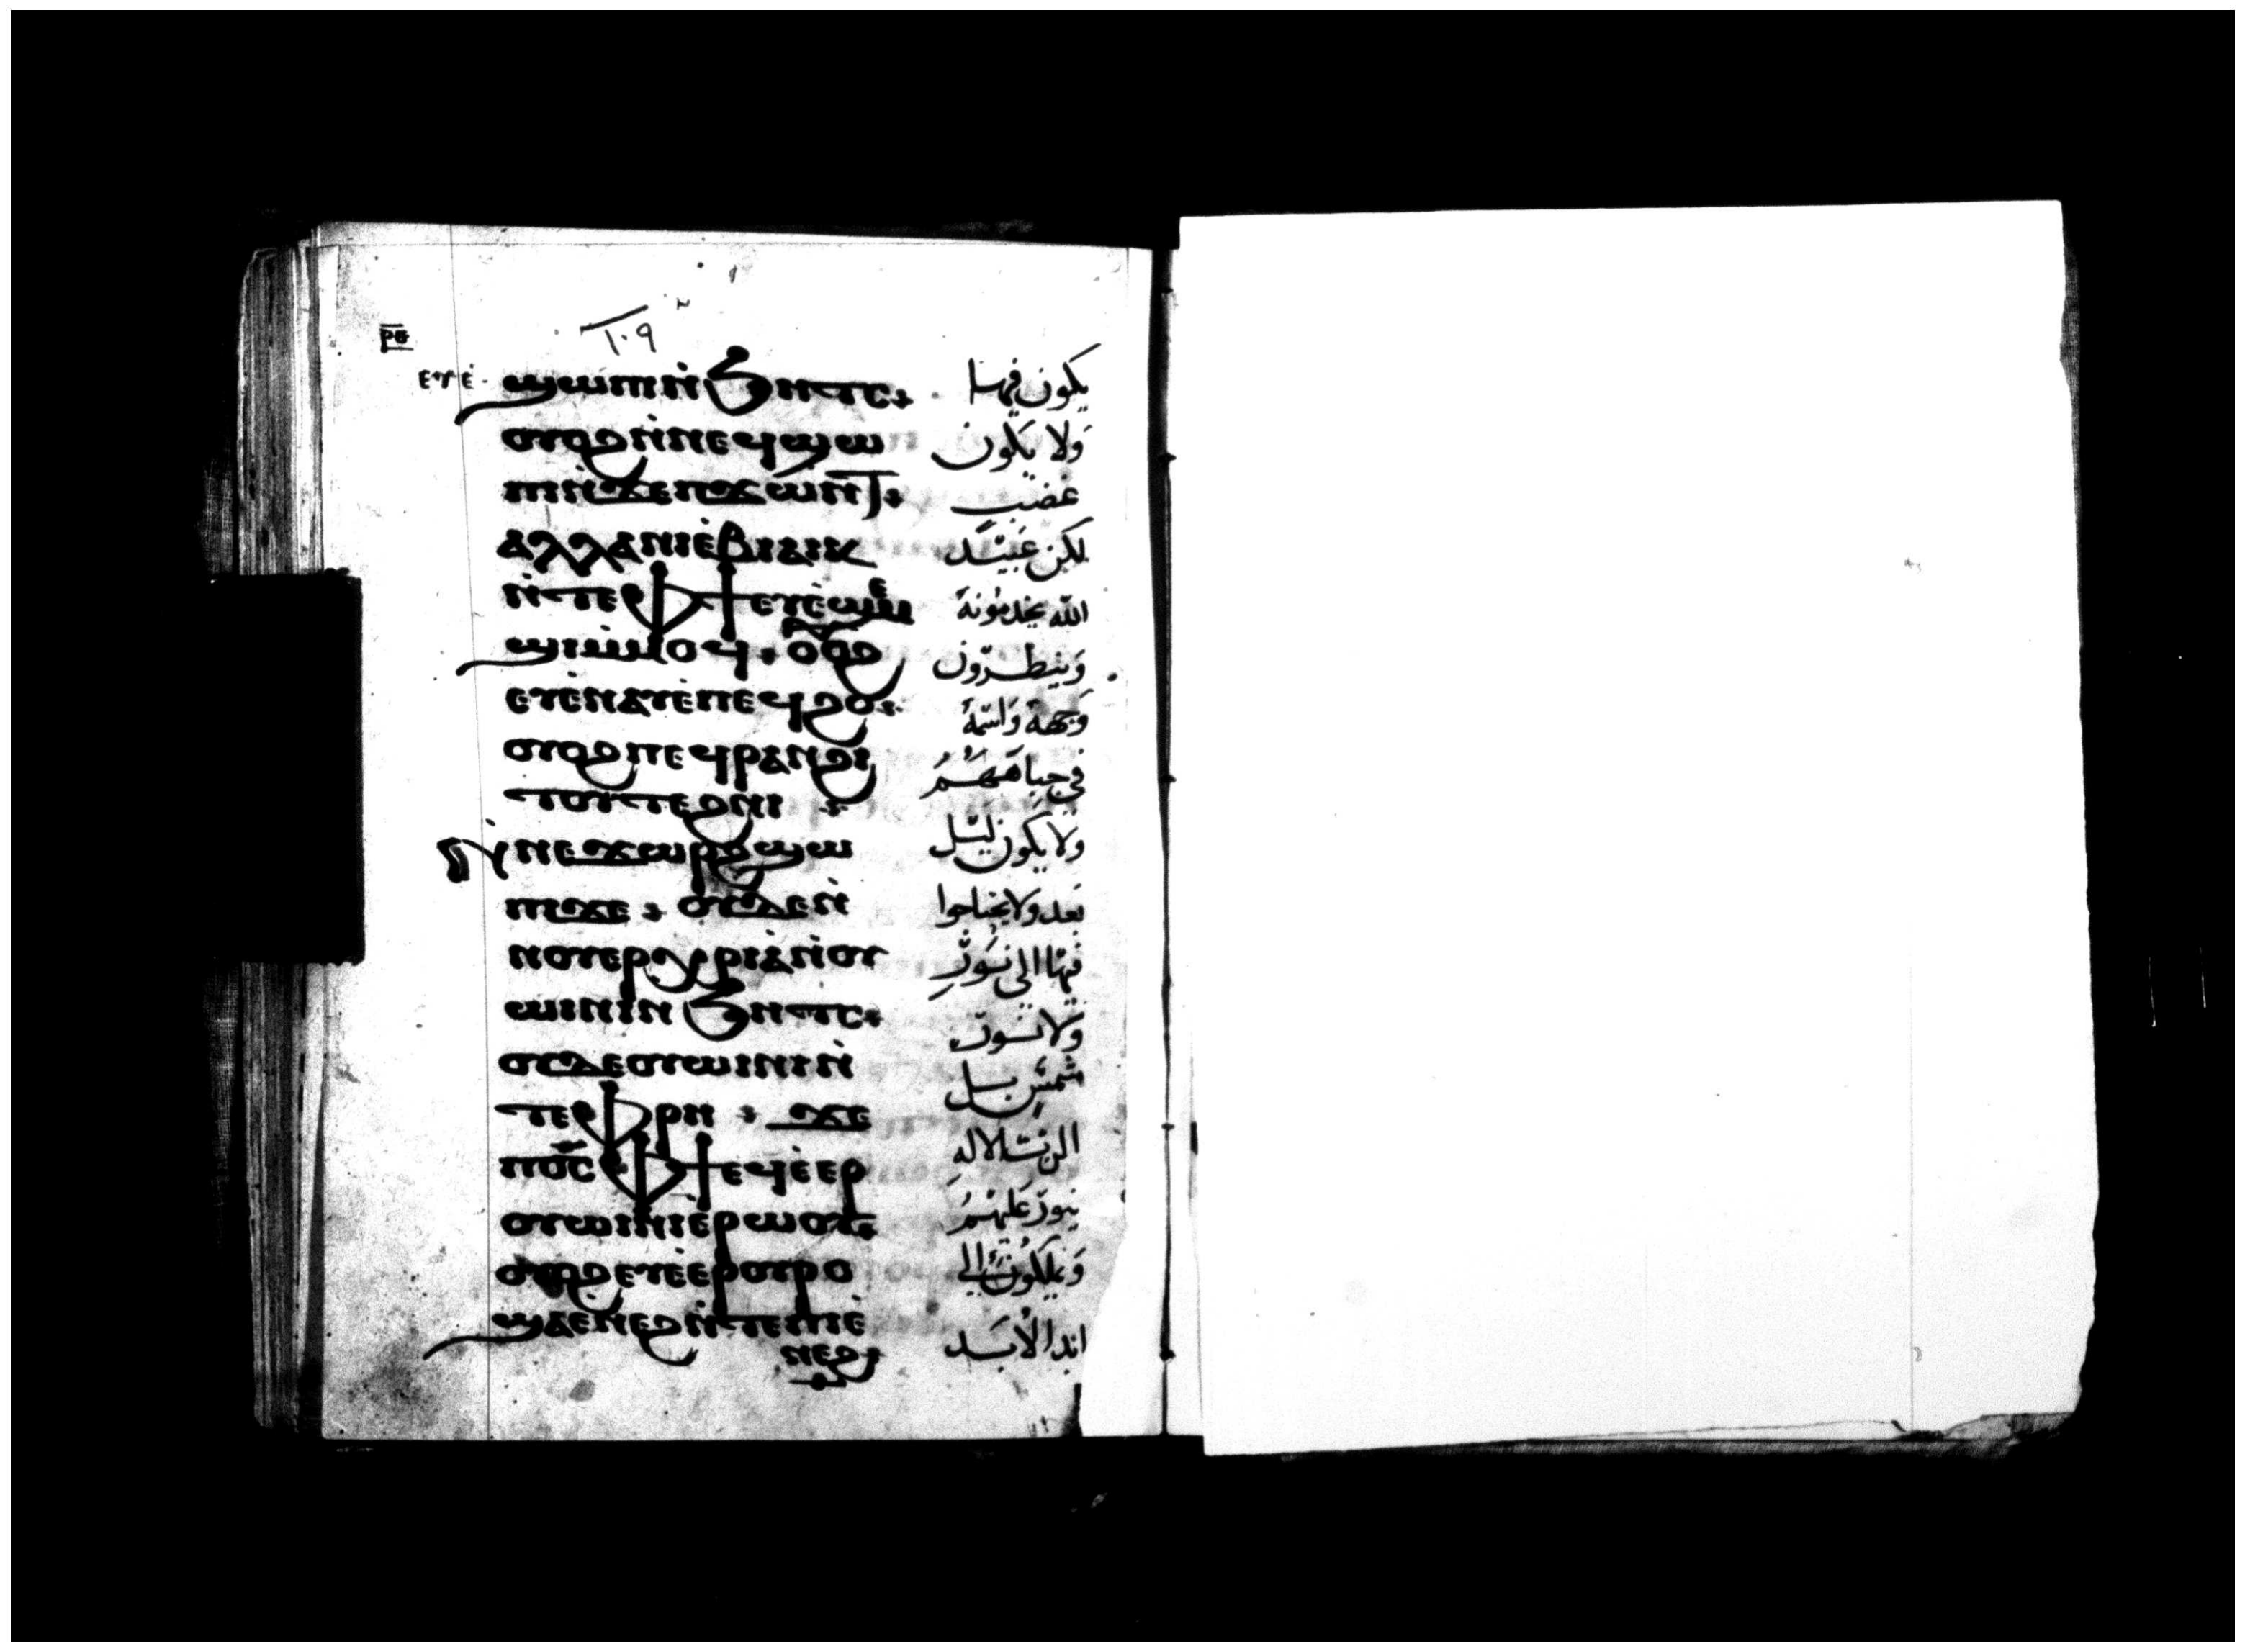 ⲣⲑ
١٠٩
ⲉⲩⲉ̀ ϣⲱⲡⲓ ⲛ̀ϧⲏⲧⲥ
ⲟⲩⲟϩ ⲛ̀ⲛⲉϥϣⲱ
ⲡⲓ ⲛ̀ϫⲉ ⲡϫⲱⲛ̀ⲧ
ⲁⲗⲗⲁ ⲛⲓⲉ̀ⲃⲓⲁⲓⲕ
ⲛ̀ⲧⲉ ⲫϯ ⲉⲩⲉ̀ϣⲉⲙ
ϣⲓ ⲙ̀ⲙⲟϥ ⲟⲩⲟϩ
ⲉⲩⲉ̀ⲛⲁⲩ ⲉ̀ⲡⲉϥϩⲟ
ⲟⲩⲟϩ ⲡⲉϥⲣⲁⲛ ϩⲓ
ⲧⲟⲩⲧⲉϩⲛⲓ
ⲛ̀ⲛⲉ ϫⲱⲣϩ ϣⲱ
ⲡⲓ ϫⲉ ⲟⲩⲇⲉ ⲛ̀
ⲛⲟⲩⲉⲣⲭⲣⲓⲁ ⲛ̀ⲟⲩ
ⲱⲓⲛⲓ ⲛ̀ϧⲏⲧⲥ
ⲟⲩⲇⲉ ⲟⲩⲱⲓⲛⲓ ⲛ̀
ⲧⲉ ⲫⲣⲏ ϫⲉ
ⲡⲟ̅ⲥ̅ ⲫϯ ⲉϥⲉ̀ⲉⲣ
ⲟⲩⲱⲓⲛⲓ ⲉ̀ⲣⲱⲟⲩ
ⲟⲩⲟϩ ⲉⲩⲉ̀ⲉⲣⲟⲩⲣⲟ
ϣⲁ ⲉⲛⲉϩ ⲛ̀ⲧⲉ ⲡⲓⲉ̀
ⲛⲉϩ
يكون فيها
ولا يكون
غضب
لكن عبيد
الله يخدمونه
وينظرون
وجهه واسمه
في جباههم
ولا يكون ليل
بعد ولا يحتاجوا
فيها الى نور
ولا نور
شمس بل
الرب الاله
ينور عليهم
ويملكون الى
ابد الابد